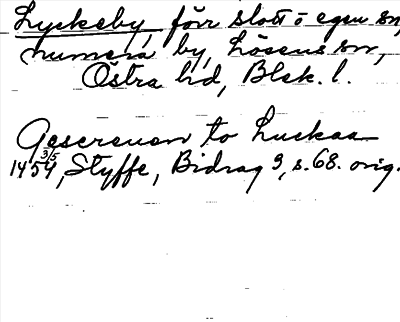 Lyckeby, förr slott o egen sn,
numera by, Lösens sn,
Östra hd, Blek. l.
to Luckaa
1454 3/5, Styffe, Bidrag 3, s. 68. orig.